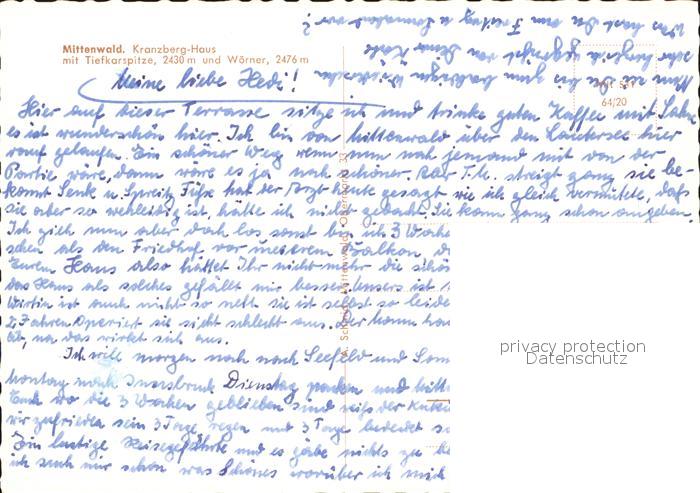 Mittenwald. Kranzberg-Haus
mit Tiefkarspitze, 2430 m und Wörner, 2476 m
Meine liebe Hedi!
Hier auf dieser Terrasse sitze ich und trinke guten Kaffee mit Sahne
es ist wunderschön hier. Ich bin von Mittenwald über den Lautersee hier
rauf gelaufen. Ein schöner Weg wenn nun noch jemand mit von der
Partie wäre, dann wäre es ja noch schöner. Aber streigt ganz sie be-
kommt Senk u. Spreitz Füße hat der Arzt heute gesagt wie ich gleich vermutete, daß
sie aber so wehleidig ist, hätte ich nicht gedacht. Sie kann ganz schön angeben.
Ich zieh nun aber doch los sonst bin ich 3 Woch
schen als den Friedhof vor unserem Balkon
Eurem Haus also hättet Ihr nicht mehr die schön
das Haus als solches gefällt mir besser unsers ist
Wirtin ist auch nicht so nett sie ist selbst so leide
2 Jahren operiert sie sieht schlecht aus.
na das wirkt sich aus.
Ich will morgen nach Seefeld und Som
Montag nach Innsbruck Dienstag packen und
Euch wo die 3 Wochen geblieben sind
wir zufrieden sein 3 Tage regen und 3 Tage bedeckt
Ein lustige Reisegefährte und es gäbe nichts zu
ich such mir schon was Schönes worüber ich mich
von Deiner Rolle
Was hast Du am Freitag u. Sonnabend vor?
64/20
privacy protection
Datenschutz